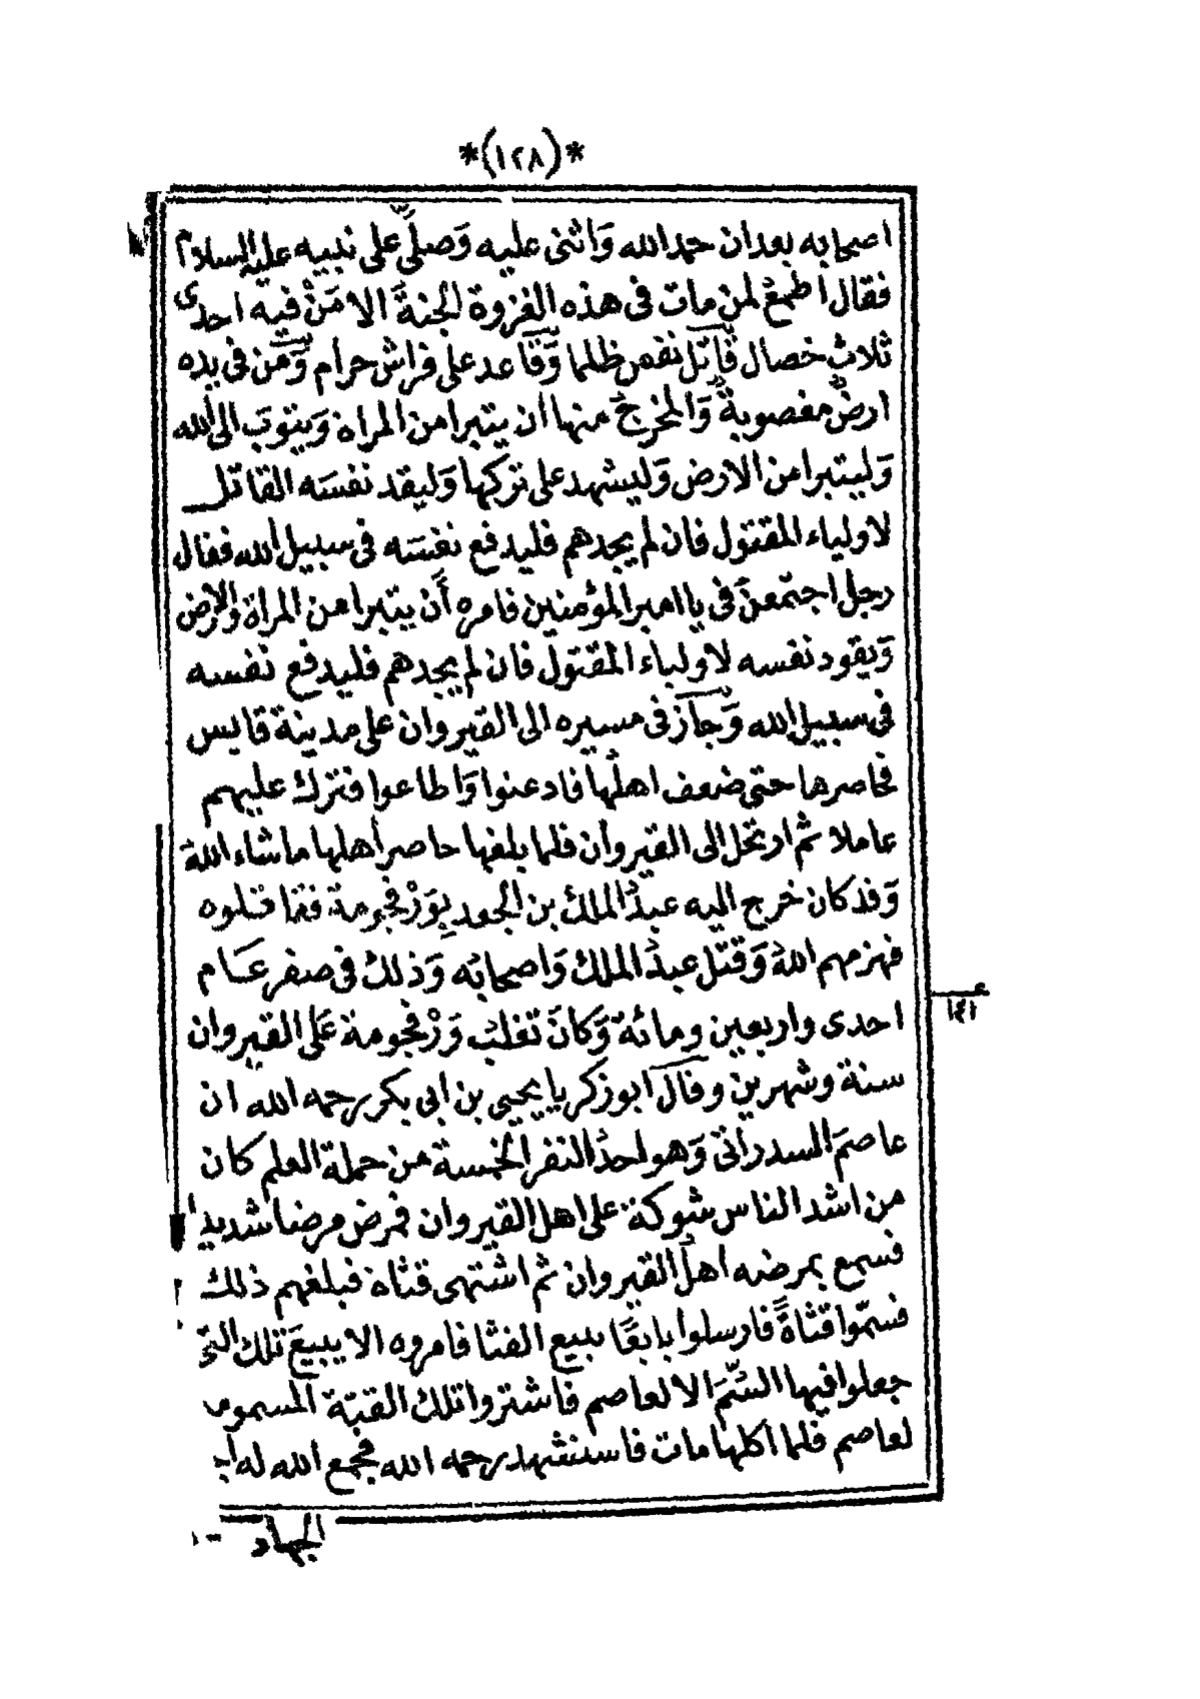 *(١٢٨)*
اصحابه بعد ان حمد الله وَاثنى عليه وَصلّى على نبيه عليه السلام
فقال اطمعُ لمن مات فى هذه الغزوة الجنةَ الا مَنْ فيه احدى
ثلاث خصال قَاتل نفس ظلما وَقاعد على فراش حرام وَمن فى يده
ارضٌ مغصوبةٌ وَالمخرجُ منها ان يتبرا من المراة وَيتوبَ الى الله
وَليتبرا من الارض وَليشهد على تركها وَليقد نفسَه القاتل
لاولياء المقتول فان لم يجدهم فليدفع نفسَه فى سبيل الله فقال
رجل اجتمعنَ فىَّ يا امير المؤمنين فامره أن يتبرا من المراة والارض
وَيقود نفسه لاولياء المقتول فان لم يجدهم فليدفع نفسه
فى سبيل الله وَجاز فى مسيره الى القيروان على مدينة قابس
فحاصرها حتى ضعف اهلُها فادعنوا وَاطاعوا فترك عليهم
عاملا ثم ارتحل الى القيروان فلما بلغها حاصر أهلها ما شاء اللهُ
وَقد كان خرج اليه عبدُ الملك بن الجعد بِوَرْفجومة فقاتلوه
فهزمهم اللهُ وَقتل عبدُ الملك وَاصحابه وَذلك فى صفر عام
احدى واربعين ومائة وَكانَ تغلب وَرْفجومة عَلى القيروان
سنة وشهرين وقال ابو زكرياء يحيى بن ابى بكر رحمه الله ان
عاصمَ السدراتى وَهو احدُ النفر الخمسة من حملة العلم كان
من اشد الناس شوكة على اهل القيروان فمرض مرضا شديدا
فسمع بمرضه اهلُ القيروان ثم اشتهى قثاة فبلغهم ذلك
فسمّوا قثاةً فارسلوا بايعًا يبيع القثا فامروه الا يبيعَ تلك التى
جعلوا فيها السّمَ الا لعاصم فاشتروا تلك القبّة المسمو
لعاصم فلما اكلها مات فاستشهد رحمه الله فجمع الله له
الجهاد
١٤١